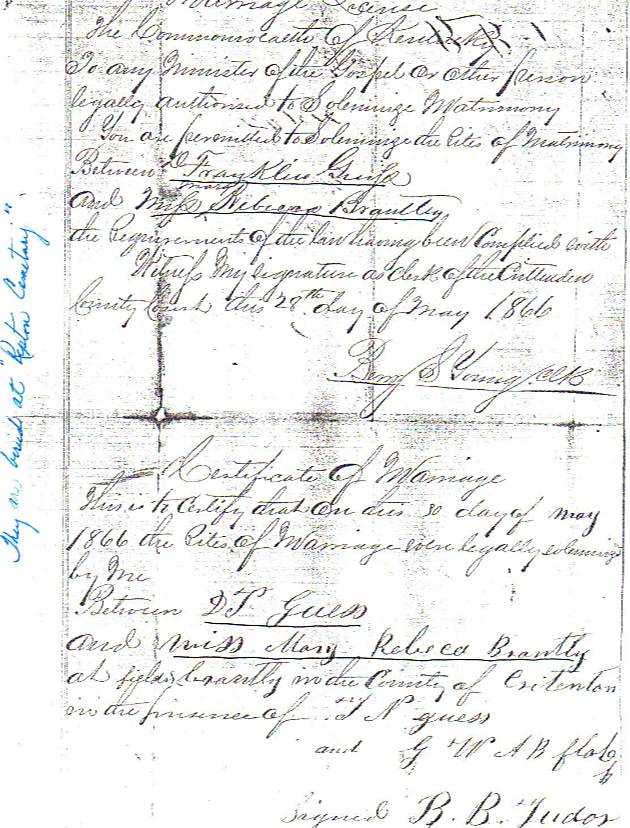 Marriage License
The Commonwealth of Kentucky
To any Minister of the Gospel or other person
legally authorised to Solemnize Matrimony
You are permitted to Solemnize the Rites of Matrimony
Between D Franklin Guess
mary
and Miss Rebecca Brantley
the Requirements of the law having been Complied with
Witness My signature as clerk of the Crittenden
County Court this 28th day of May 1866
Berry S Young clk
Certificate of Marriage
This is to Certify that on this 30 day of may
1866 the Rites of Marriage were legally solemnized
by Me
Between D F Guess
and miss Mary Rebeca Brantly
at brantly in the County of Critenton
in the presence of N guess
and G W A B
Signed B. B. Tudor
They are buried at "Cemetary."